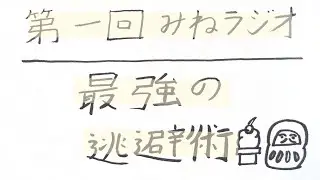 第一回みねラジオ
最強の
逃避術